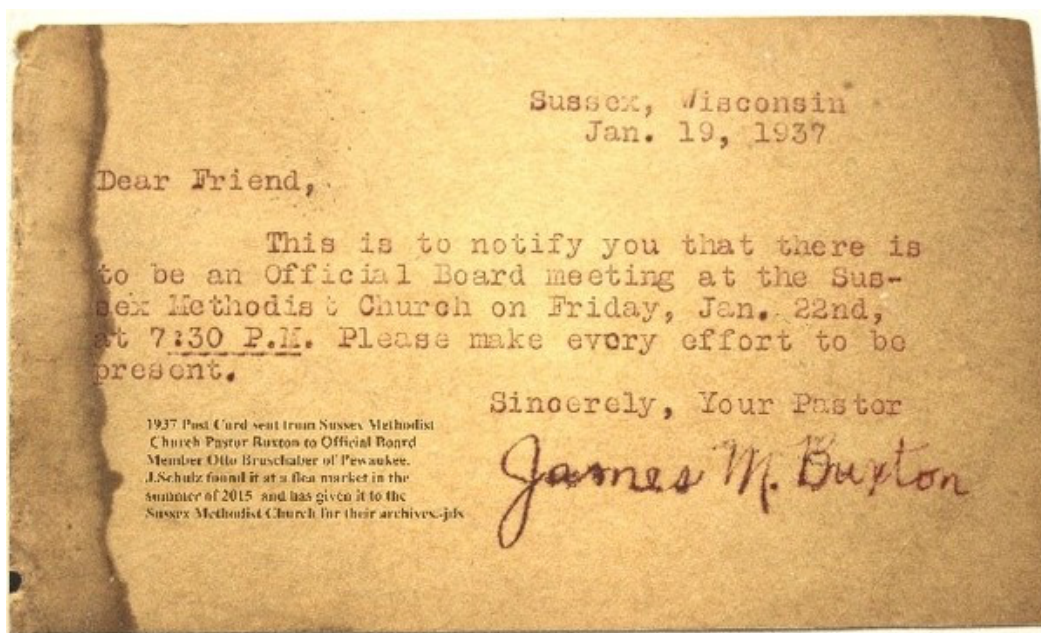 Sussex, Wisconsin
Jan. 19, 1937
Dear Friend,
This is to notify you that there is
to be an Official Board meeting at the Sus-
sex Methodist Church on Friday, Jan. 22nd,
at 7:30 P.M. Please make every effort to be
present.
Sincerely, Your Pastor
James M. Buxton
1937 Post Card sent from Sussex Methodist
Church Pastor Buxton to Official Board
Member Otto Bruschaber of Pewaukee.
J.Schulz found it at a flea market in the
summer of 2015 and has given it to the
Sussex Methodist Church for their archives.-jds